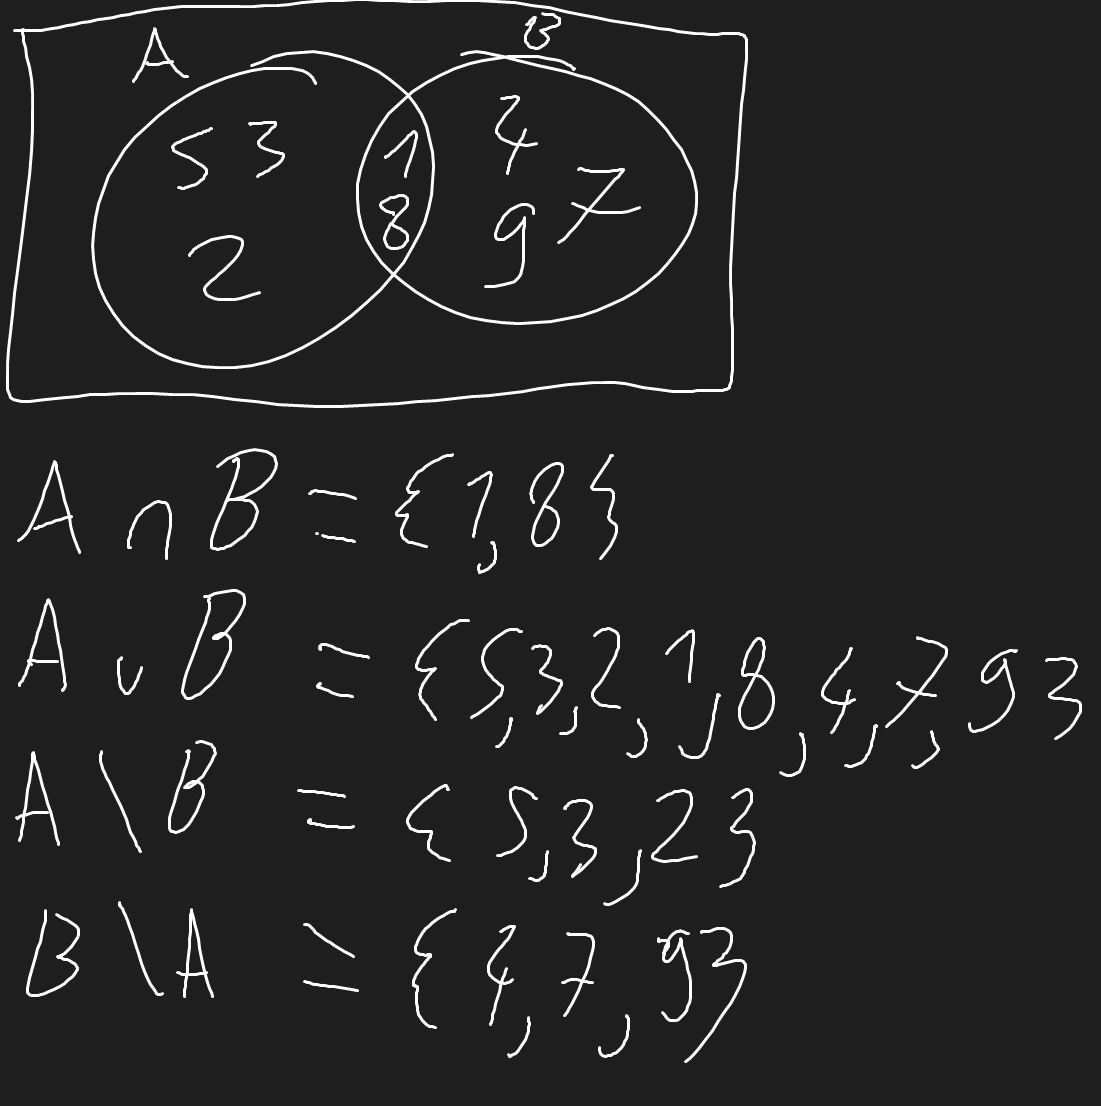 A B
5 3 1 4
8 9 7
2
A ∩ B = {1,8}
A ∪ B = {5,3,2,1,8,4,7,9}
A \ B = {5,3,2}
B \ A = {4,7,9}